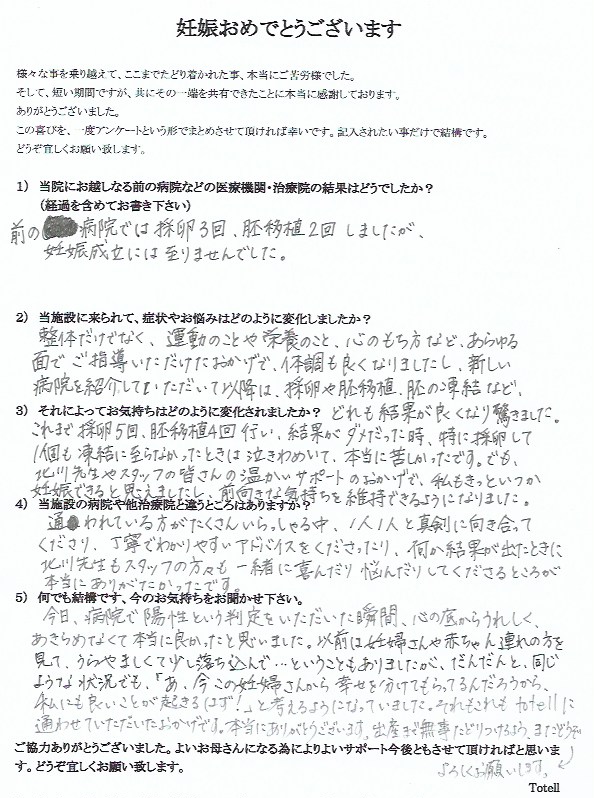 妊娠おめでとうございます
様々な事を乗り越えて、ここまでたどり着かれた事、本当にご苦労様でした。
そして、短い期間ですが、共にその一端を共有できたことに本当に感謝しております。
ありがとうございました。
この喜びを、一度アンケートという形でまとめさせて頂ければ幸いです。記入されたい事だけで結構です。
どうぞ宜しくお願い致します。
1） 当院にお越しなる前の病院などの医療機関・治療院の結果はどうでしたか？
（経過を含めてお書き下さい）
前の 病院では採卵3回、胚移植2回しましたが、
妊娠成立には至りませんでした。
2） 当施設に来られて、症状やお悩みはどのように変化しましたか？
整体だけでなく、運動のことや栄養のこと、心のもち方など、あらゆる
面でご指導いただけたおかげで、体調も良くなりましたし、新しい
病院を紹介していただいて以降は、採卵や胚移植、胚の凍結など、
3） それによってお気持ちはどのように変化されましたか？ どれも結果が良くなり驚きました。
これまで採卵5回、胚移植4回行い、結果がダメだった時、特に採卵して
1個も凍結に至らなかったときは泣きわめいて、本当に苦しかったです。でも、
北川先生やスタッフの皆さんの温かいサポートのおかげで、私もきっといつか
妊娠できると思えましたし、前向きな気持ちを維持できるようになりました。
4） 当施設の病院や他治療院と違うところはありますか？
通われている方がたくさんいらっしゃる中、1人1人と真剣に向き合って
くださり、丁寧でわかりやすいアドバイスをくださったり、何か結果が出たときに
北川先生もスタッフの方々も一緒に喜んだり悩んだりしてくださるところが
本当にありがたかったです。
5） 何でも結構です、今のお気持ちをお聞かせ下さい。
今日、病院で陽性という判定をいただいた瞬間、心の底からうれしく、
あきらめなくて本当に良かったと思いました。以前は妊婦さんや赤ちゃん連れの方を
見て、うらやましくて少し落ち込んで…ということもありましたが、だんだんと、同じ
ような状況でも、「あ、今この妊婦さんから幸せを分けてもらってるんだろうから、
私にも良いことが起きるはず!」と考えるようになっていました。それもこれもtotellに
通わせていただいたおかげです。本当にありがとうございます。出産まで無事たどりつけるよう、まだどうぞ
よろしくお願いします。
ご協力ありがとうございました。よいお母さんになる為によりよいサポート今後ともさせて頂ければと思いま
す。どうぞ宜しくお願い致します。
Totell